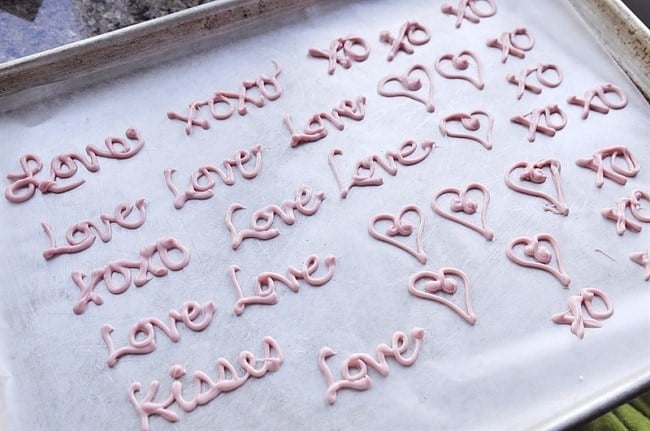 Love xoxo xo xo xo
Love Love Love xo
xoxo Love Love xo
Love Love xo xo
Kisses Love xo
xo
xo